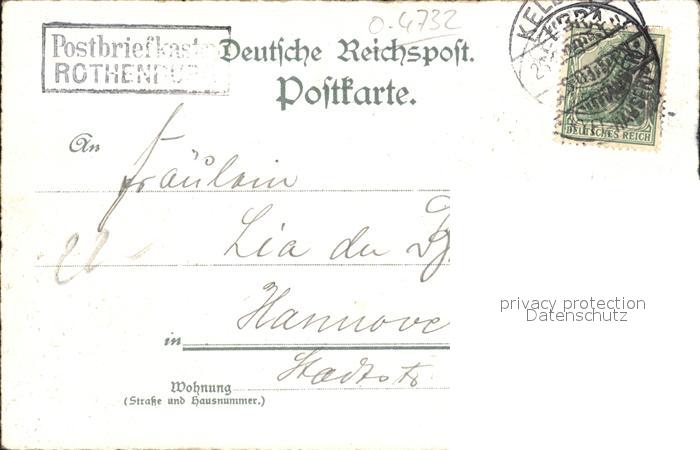 0.4732
Postbriefkaste
Deutsche Reichspost.
Postkarte.
DEUTSCHES REICH
An
Fräulein
Lia du
in Hannove
Stadtstr.
Wohnung
(Straße und Hausnummer.)
privacy protection
Datenschutz